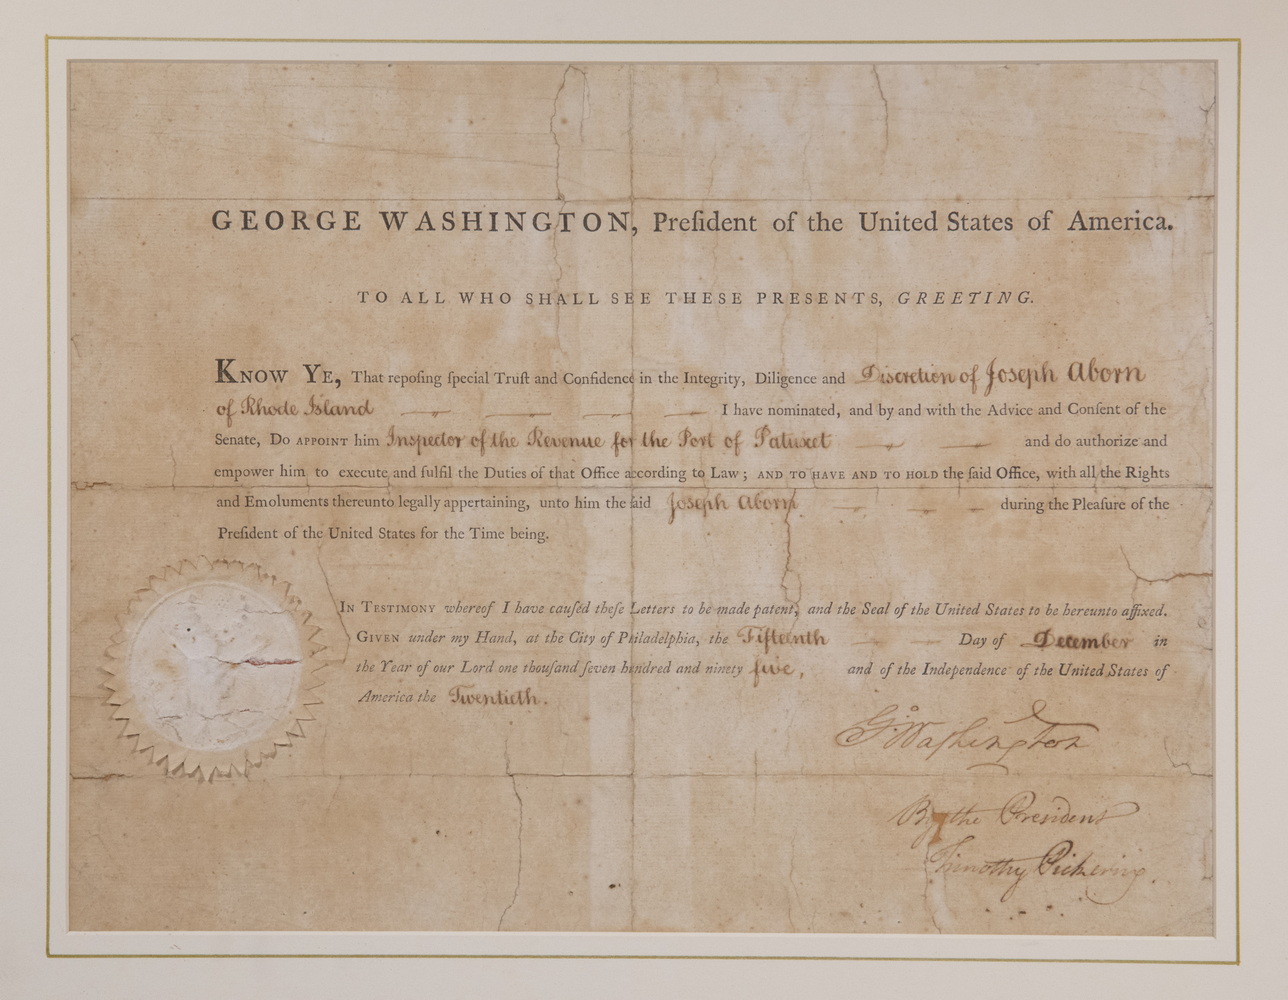 GEORGE WASHINGTON, Preſident of the United States of America.
TO ALL WHO SHALL SEE THESE PRESENTS, GREETING.
KNOW YE, That repoſing ſpecial Truſt and Confidence in the Integrity, Diligence and Discretion of Joseph Aborn
of Rhode Island I have nominated, and by and with the Advice and Conſent of the
Senate, DO APPOINT him Inspector of the Revenue for the Port of Patuxet and do authorize and
empower him to execute and fulfil the Duties of that Office according to Law; AND TO HAVE AND TO HOLD the ſaid Office, with all the Rights
and Emoluments thereunto legally appertaining, unto him the ſaid Joseph Aborn during the Pleaſure of the
Preſident of the United States for the Time being.
IN TESTIMONY whereof I have cauſed theſe Letters to be made patent, and the Seal of the United States to be hereunto affixed.
GIVEN under my Hand, at the City of Philadelphia, the Fifteenth Day of December in
the Year of our Lord one thouſand ſeven hundred and ninety five, and of the Independence of the United States of
America the Twentieth.
G:Washington
By the President
Timothy Pickering.